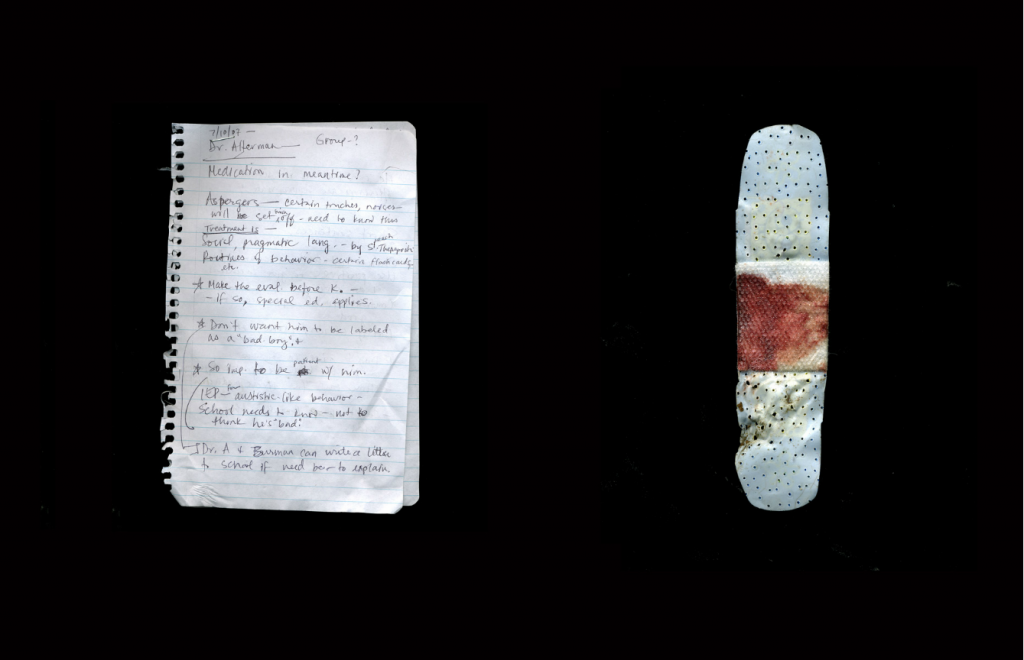 7/10/07 —
Dr. Alterman Group - ?
Medication in meantime?
Aspergers — certain touches, noises
will be set him off - need to know this
Treatment is —
Social, pragmatic lang - - by Speech Therapists
Routines of behavior - certain flashcards,
etc.
* Make the eval before K. -
- if so, special ed. applies.
* Don't want him to be labeled
as a "bad boy".
* So imp. to be patient w/ him.
IEP - for austistic-like behavior -
School needs to know - not to
think he's "bad."
Dr. A & can write a letter
to school if need be - to explain.